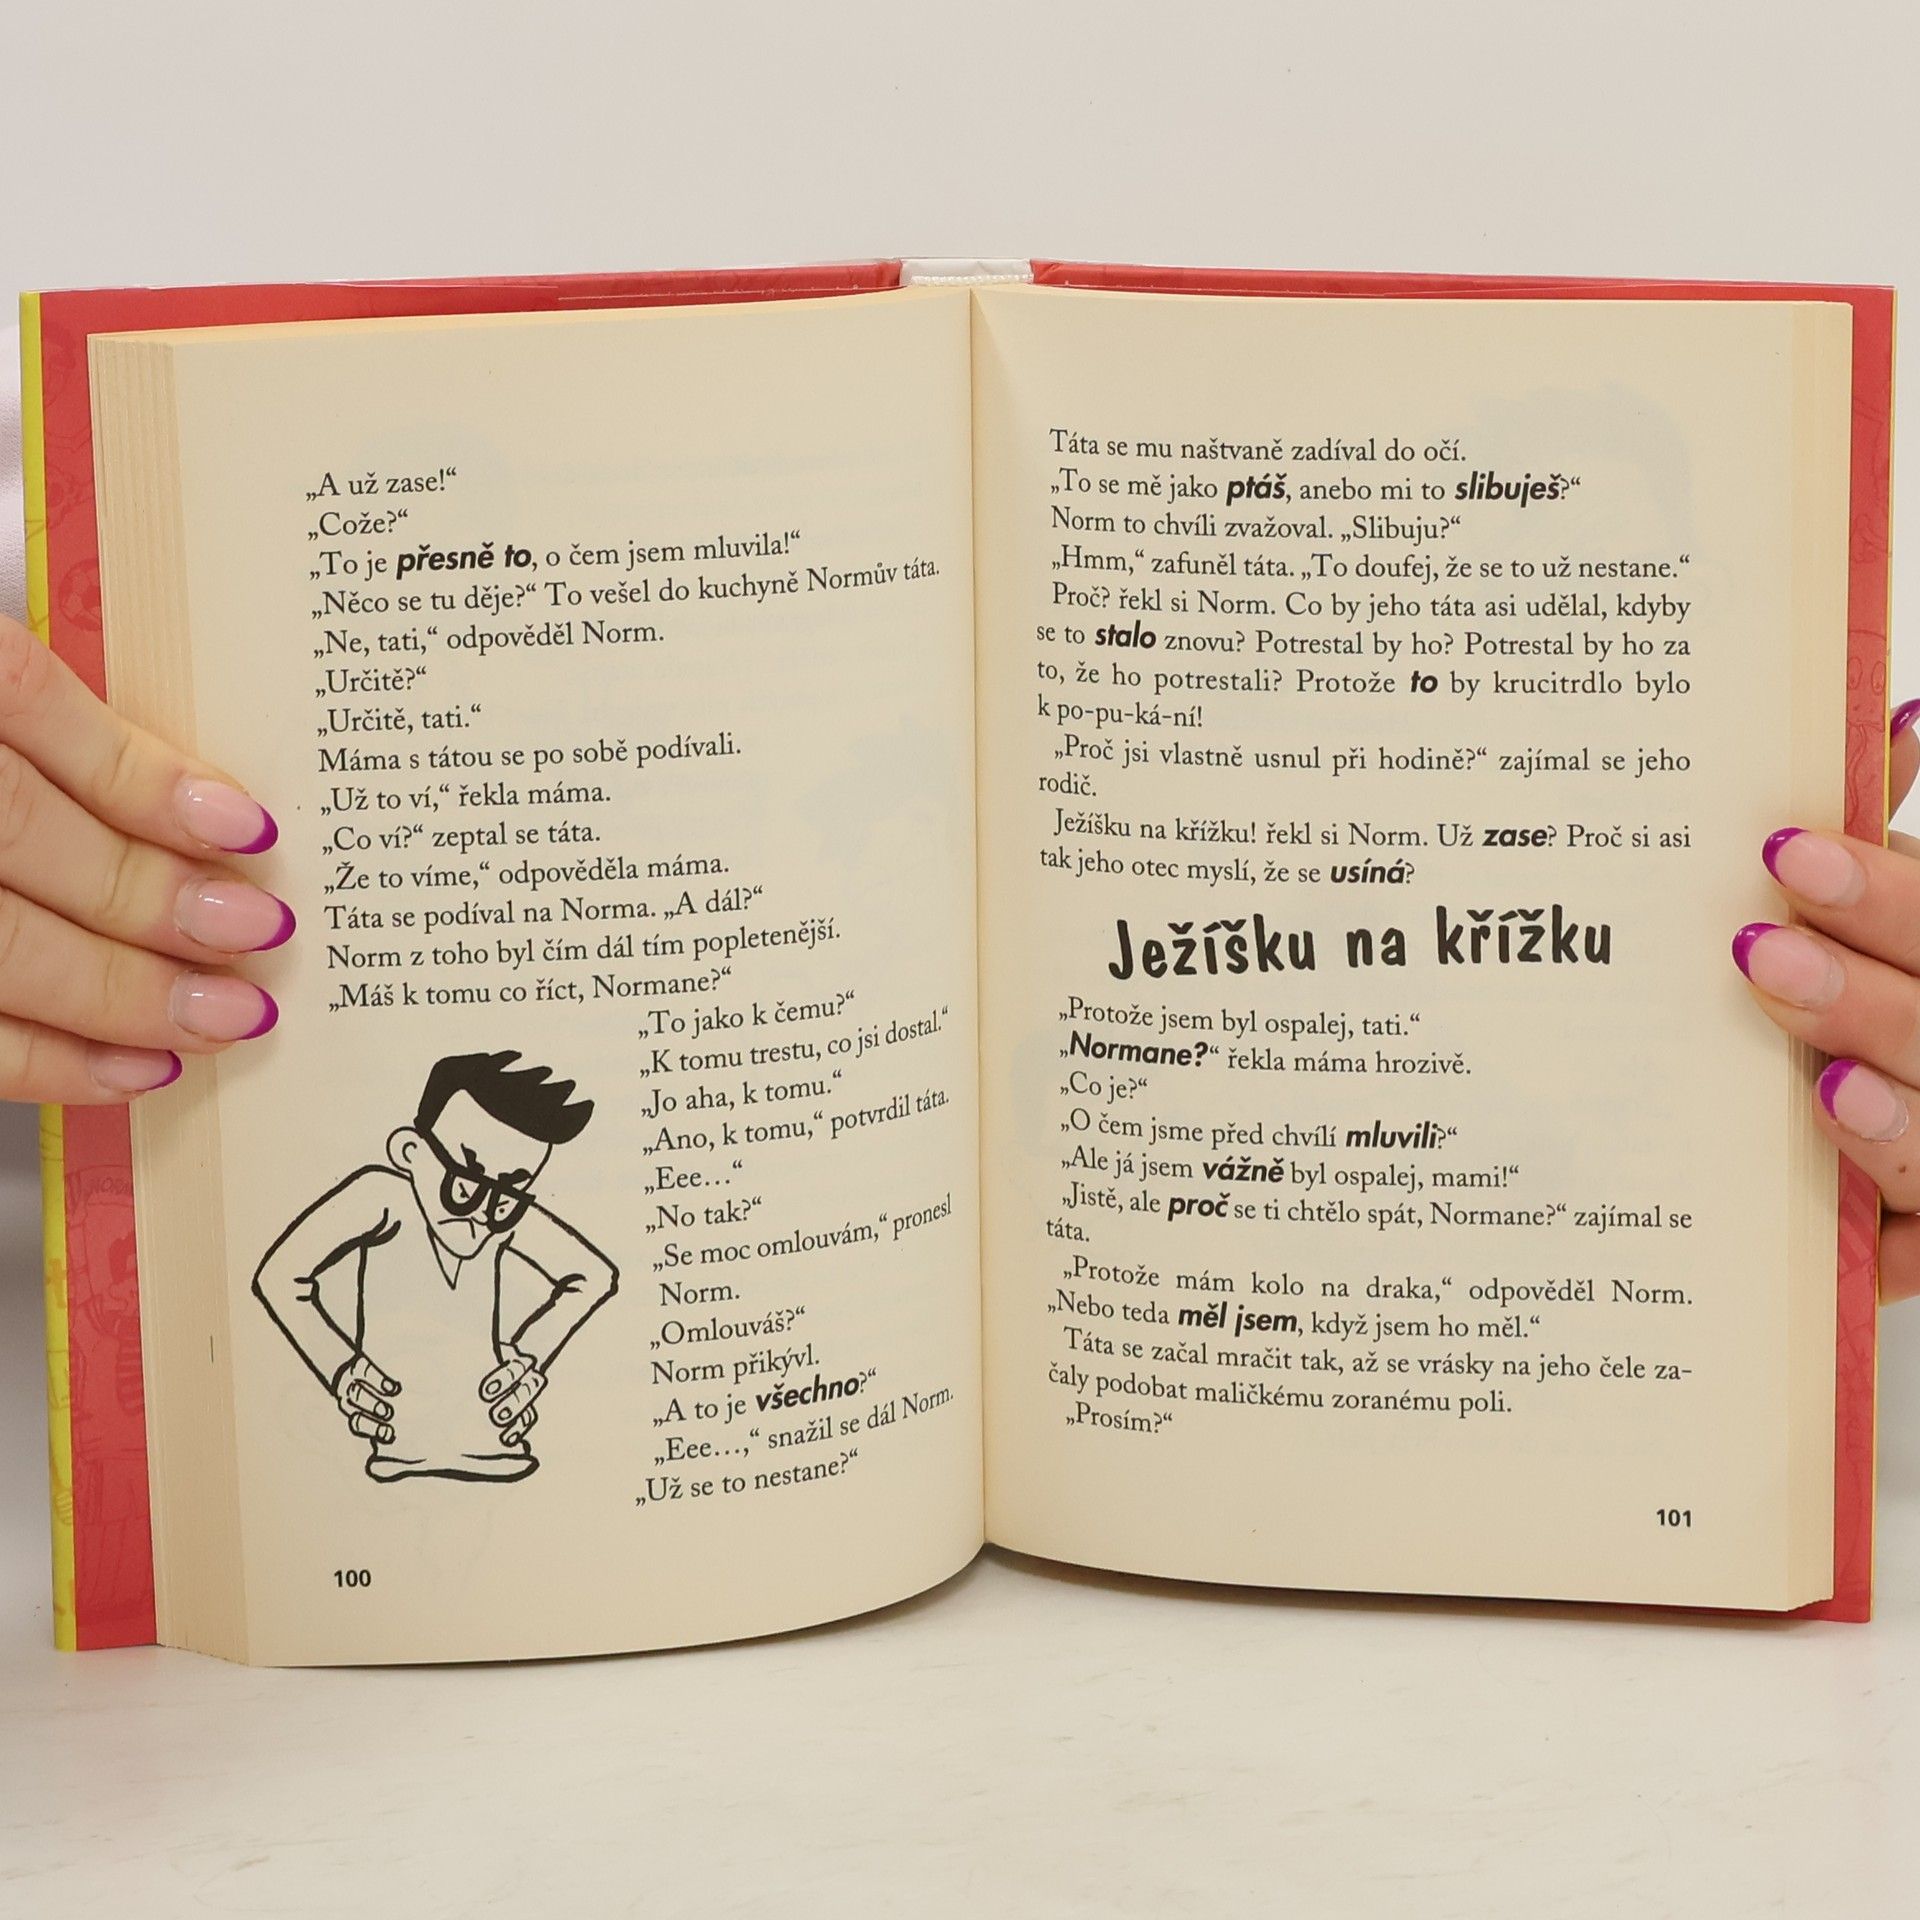 „A už zase!“
„Cože?“
„To je přesně to, o čem jsem mluvila!“
„Něco se tu děje?“ To vešel do kuchyně Normův táta.
„Ne, tati,“ odpověděl Norm.
„Určitě?“
„Určitě, tati.“
Máma s tátou se po sobě podívali.
„Už to ví,“ řekla máma.
„Co ví?“ zeptal se táta.
„Že to víme,“ odpověděla máma.
Táta se podíval na Norma. „A dál?“
Norm z toho byl čím dál tím popletenější.
„Máš k tomu co říct, Normane?“
„To jako k čemu?“
„K tomu trestu, co jsi dostal.“
„Jo aha, k tomu.“
„Ano, k tomu,“ potvrdil táta.
„Eee…“
„No tak?“
„Se moc omlouvám,“ pronesl
Norm.
„Omlouváš?“
Norm přikývl.
„A to je všechno?“
„Eee…,“ snažil se dál Norm.
„Už se to nestane?“
100
Táta se mu naštvaně zadíval do očí.
„To se mě jako ptáš, anebo mi to slibuješ?“
Norm to chvíli zvažoval. „Slibuju?“
„Hmm,“ zafuněl táta. „To doufej, že se to už nestane.“
Proč? řekl si Norm. Co by jeho táta asi udělal, kdyby
se to stalo znovu? Potrestal by ho? Potrestal by ho za
to, že ho potrestali? Protože to by krucitrdlo bylo
k po-pu-ká-ní!
„Proč jsi vlastně usnul při hodině?“ zajímal se jeho
rodič.
Ježíšku na křížku! řekl si Norm. Už zase? Proč si asi
tak jeho otec myslí, že se usíná?
Ježíšku na křížku
„Protože jsem byl ospalej, tati.“
„Normane?“ řekla máma hrozivě.
„Co je?“
„O čem jsme před chvílí mluvili?“
„Ale já jsem vážně byl ospalej, mami!“
„Jistě, ale proč se ti chtělo spát, Normane?“ zajímal se
táta.
„Protože mám kolo na draka,“ odpověděl Norm.
„Nebo teda měl jsem, když jsem ho měl.“
Táta se začal mračit tak, až se vrásky na jeho čele za-
čaly podobat maličkému zoranému poli.
„Prosím?“
101